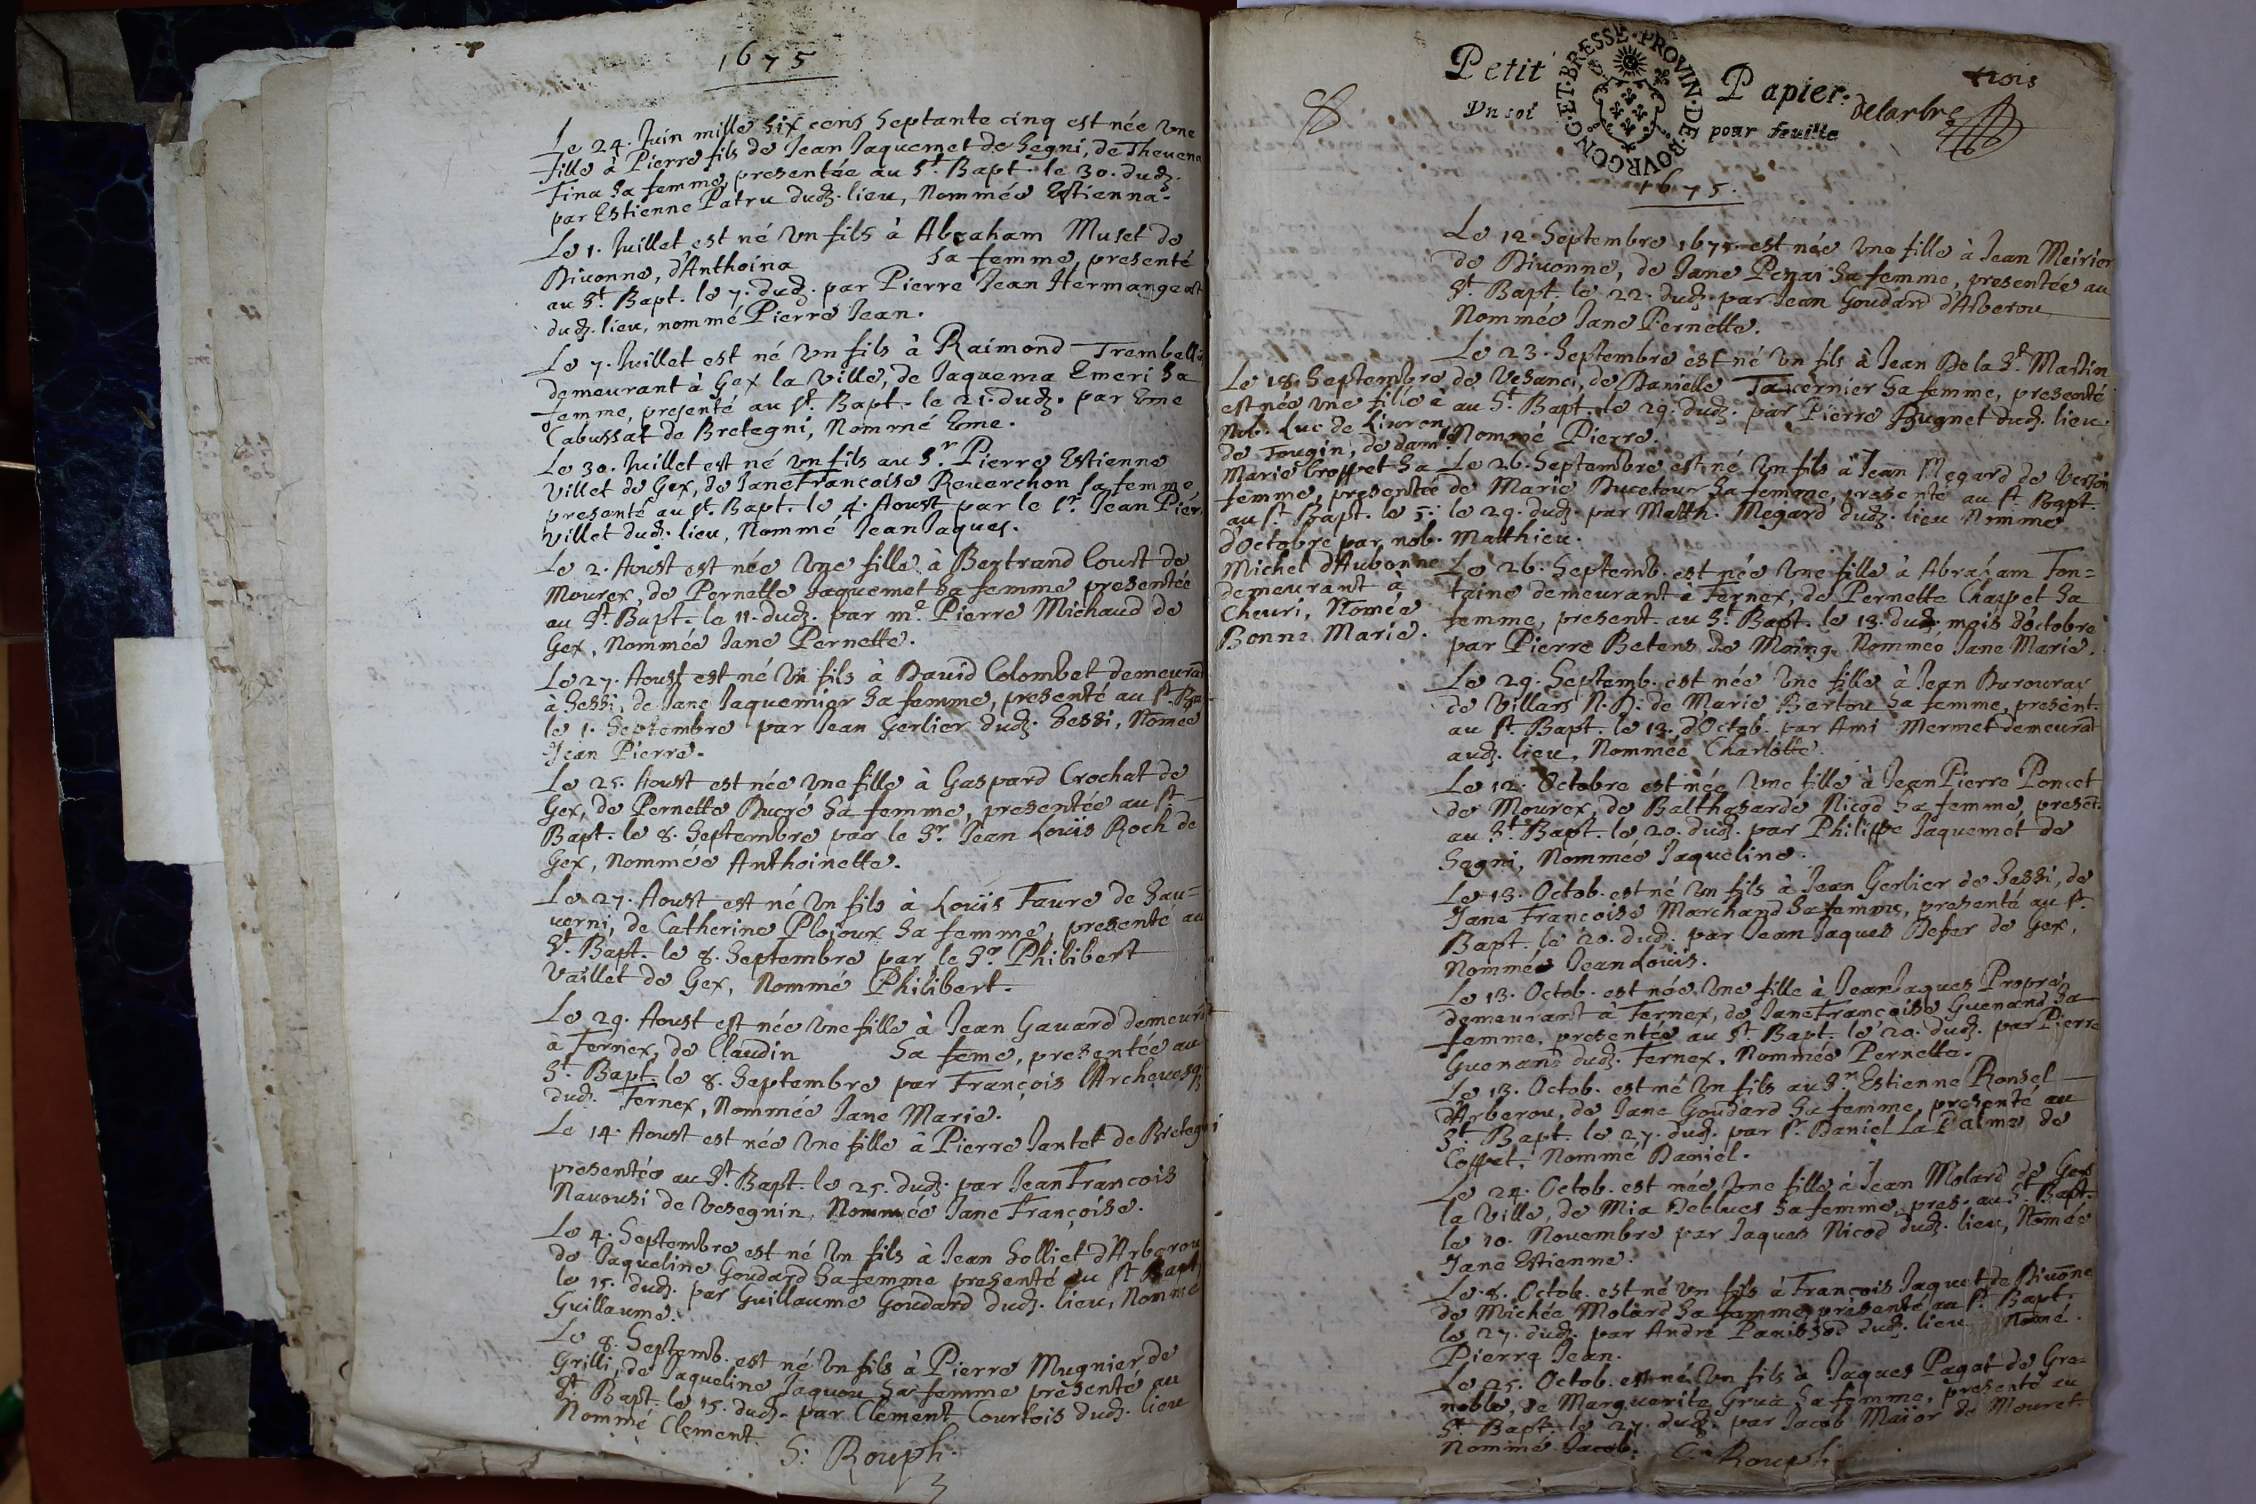 1675
Le 24. Juin mille six cens septante cinq est née une
fille à Pierre fils de Jean Jaquemet de Segni, de Thevena
Tina sa femme, presentée au St. Bapt. le 30. dud.
par Estienne Patru dud. lieu, Nommée Estienna.
Le 1. Juillet est né un fils à Abraham Muset de
Divonne, d'Anthoina sa femme, presenté
au St. Bapt. le 7. dud. par Pierre Jean Hermangeat
dud. lieu, nommé Pierre Jean.
Le 7. Juillet est né un fils à Raimond Trembella
demeurant à Gex la ville, de Jaquema Emeri sa
femme, presenté au St. Bapt. le 21. dud. par Eme
Cabussat de Bretegni, Nommé Eme.
Le 30. Juillet est né un fils au Sr. Pierre Estienne
Villet de Gex, de Jane Francoise Reverchon sa femme
presenté au St. Bapt. le 4. Aoust par le Sr. Jean Pier
Villet dud. lieu, Nommé Jean Jaques.
Le 2. Aoust est née une fille à Bertrand Court de
Mourex, de Pernette Jaquemet sa femme presentée
au St. Bapt. le 11. dud. par me. Pierre Michaud de
Gex, Nommée Jane Pernette.
Le 27. Aoust est né un fils à David Colombet demeurat
à Sessi, de Jane Jaquemier sa femme, presenté au St. Bap
le 1. Septembre par Jean Gerlier dud. Sessi, Nomée
Jean Pierre.
Le 25. Aoust est née une fille à Gaspard Crochat de
Gex, de Pernette Ducré sa femme, presentée au St.
Bapt. le 8. Septembre par le Sr. Jean Louïs Roch de
Gex, Nommée Anthoinette.
Le 27. Aoust est né un fils à Louïs Faure de Sau=
verni, de Catherine Plojoux sa femme, presenté au
St. Bapt. le 8. Septembre par le Sr. Philibert
Vaillet de Gex, Nommé Philibert.
Le 29. Aoust est née une fille à Jean Gavard demeurat
à Fernex, de Claudin sa feme, presentée au
St. Bapt. le 8. Septembre par François l'Archevesq
dud. Fernex, Nommée Jane Marie.
Le 14. Aoust est née une fille à Pierre Jantet de Bretegni
presentée au St. Bapt. le 25. dud. par Jean Francois
Navousi de Vesegnin, Nommée Jane Françoise.
Le 4. Septembre est né un fils à Jean Solliet d'Arberou
de Jaqueline Goudard sa femme presenté au St. Bapt.
le 15. dud. par Guillaume Goudard dud. lieu, Nommé
Guillaume.
Le 8. Septemb. est né un fils à Pierre Mugnier de
Grilli, de Jaqueline Jaquou sa femme presenté au
St. Bapt. le 15. dud. par Clement Courtois dud. lieu
Nommé Clement.
S. Rouph.
Petit Papier. trois
Un sol pour feuille delarbre
BOVRGONG·ET·BRESSE·PROVIN·DE
1675.
Le 12. Septembre 1675. est née une fille à Jean Meirier
de Divonne, de Jane Penai sa femme, presentée au
St. Bapt. le 22. dud. par Jean Goudard d'Arberou
Nommée Jane Pernette.
Le 23. Septembre est né un fils à Jean De la St. Martin
de Vesanci, de Danielle Tavernier sa femme, presenté
au St. Bapt. le 29. dud. par Pierre Bugnet dud. lieu.
Nommé Pierre.
Le 18. Septembre
est née une fille à
Nob. Luc de Livron
de Tougin, de dam.
Marie Croffet sa
femme, presentée
au St. Bapt. le 5.
d'Octobre par nob.
Michel d'Aubonne
demeurant à
Chevri, Nomée
Bonne Marie.
Le 26. Septembre est né un fils à Jean Megard de Verson
de Marie Ducetour sa femme, presenté au St. Bapt.
le 29. dud. par Matth. Megard dud. lieu Nommé
Matthieu.
Le 26. Septemb. est née une fille à Abraham Fon=
taine demeurant à Fernex, de Pernette Chappet sa
femme, present. au St. Bapt. le 13. dud. mois d'octobre
par Pierre Betens de Moing. Nommée Jane Marie.
Le 29. Septemb. est née une fille à Jean Durouray
de Villars N. D. de Marie Bertou sa femme, present.
au St. Bapt. le 13. d'Octob. par Ami Mermet demeurat
aud. lieu, Nommée Charlotte.
Le 12. Octobre est née une fille à Jean Pierre Poncet
de Mourex, de Balthasarde Nicod sa femme, preset.
au St. Bapt. le 20. dud. par Philippe Jaquemet de
Segni, Nommée Jaqueline.
Le 13. Octob. est né un fils à Jean Gerlier de Sessi, de
Jane Francoise Marchand sa femme, presenté au St.
Bapt. le 20. dud. par Jean Jaques Defer de Gex,
Nommée Jean Louïs.
Le 13. Octob. est née une fille à Jean Jaques Propre
demeurant à Fernex, de Jane Françoise Guenand sa
femme, presentée au St. Bapt. le 20. dud. par Pierre
Guenand dud. Fernex. Nommée Pernette.
Le 13. Octob. est né un fils au Sr. Estienne Ronsel
d'Arberou, de Jane Goudard sa femme, presenté au
St. Bapt. le 27. dud. par Sr. Daniel La Palme de
Coppet, Nommé Daniel.
Le 24. Octob. est née une fille à Jean Molard de Gex
la ville, de Mia Deblues sa femme, pres. au St. Bapt.
le 10. Novembre par Jaques Nicod dud. lieu, Nomée
Jane Estienne.
Le 8. Octob. est né un fils à François Jaquet de Divone
de Michée Molard sa femme, presenté au St. Bapt.
le 27. dud. par André Panissod dud. lieu Nomé
Pierre Jean.
Le 25. Octob. est né un fils à Jaques Pagat de Gre=
noble, de Marguerite Grua sa femme, presenté au
St. Bapt. le 27. dud. par Jacob Maior de Mouret.
Nommé Jacob. S. Rouph.